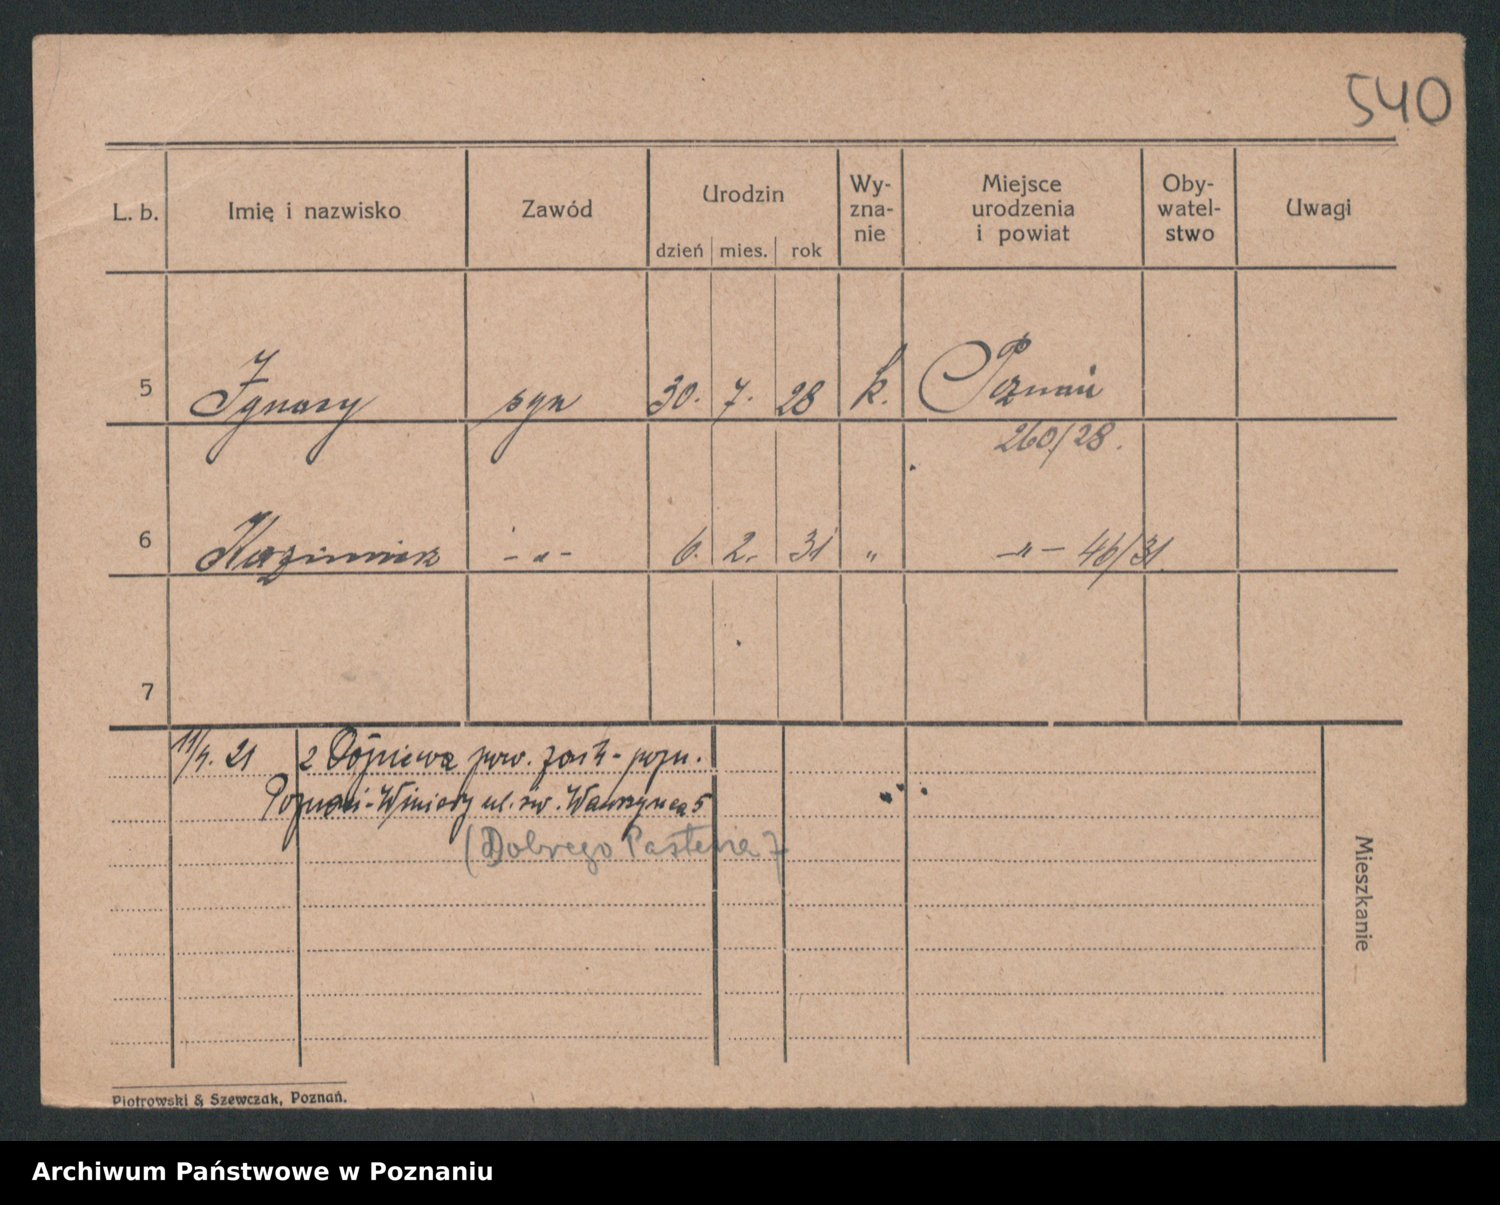 540
L. b. Imię i nazwisko Zawód Urodzin dzień mies. rok Wy- zna- nie Miejsce urodzenia i powiat Oby- watel- stwo Uwagi
5 Ignacy syn 30. 7. 28 k. Poznań
260/28.
6 Kazimierz – „ – 6. 2. 31 „ – „ – 46/31
7
11/4. 21 z pow.
Poznań-Winiary ul. św. Wawrzyńca 5
(Dobrego Pasterza 7
Mieszkanie
Piotrowski & Szewczak, Poznań.
Archiwum Państwowe w Poznaniu